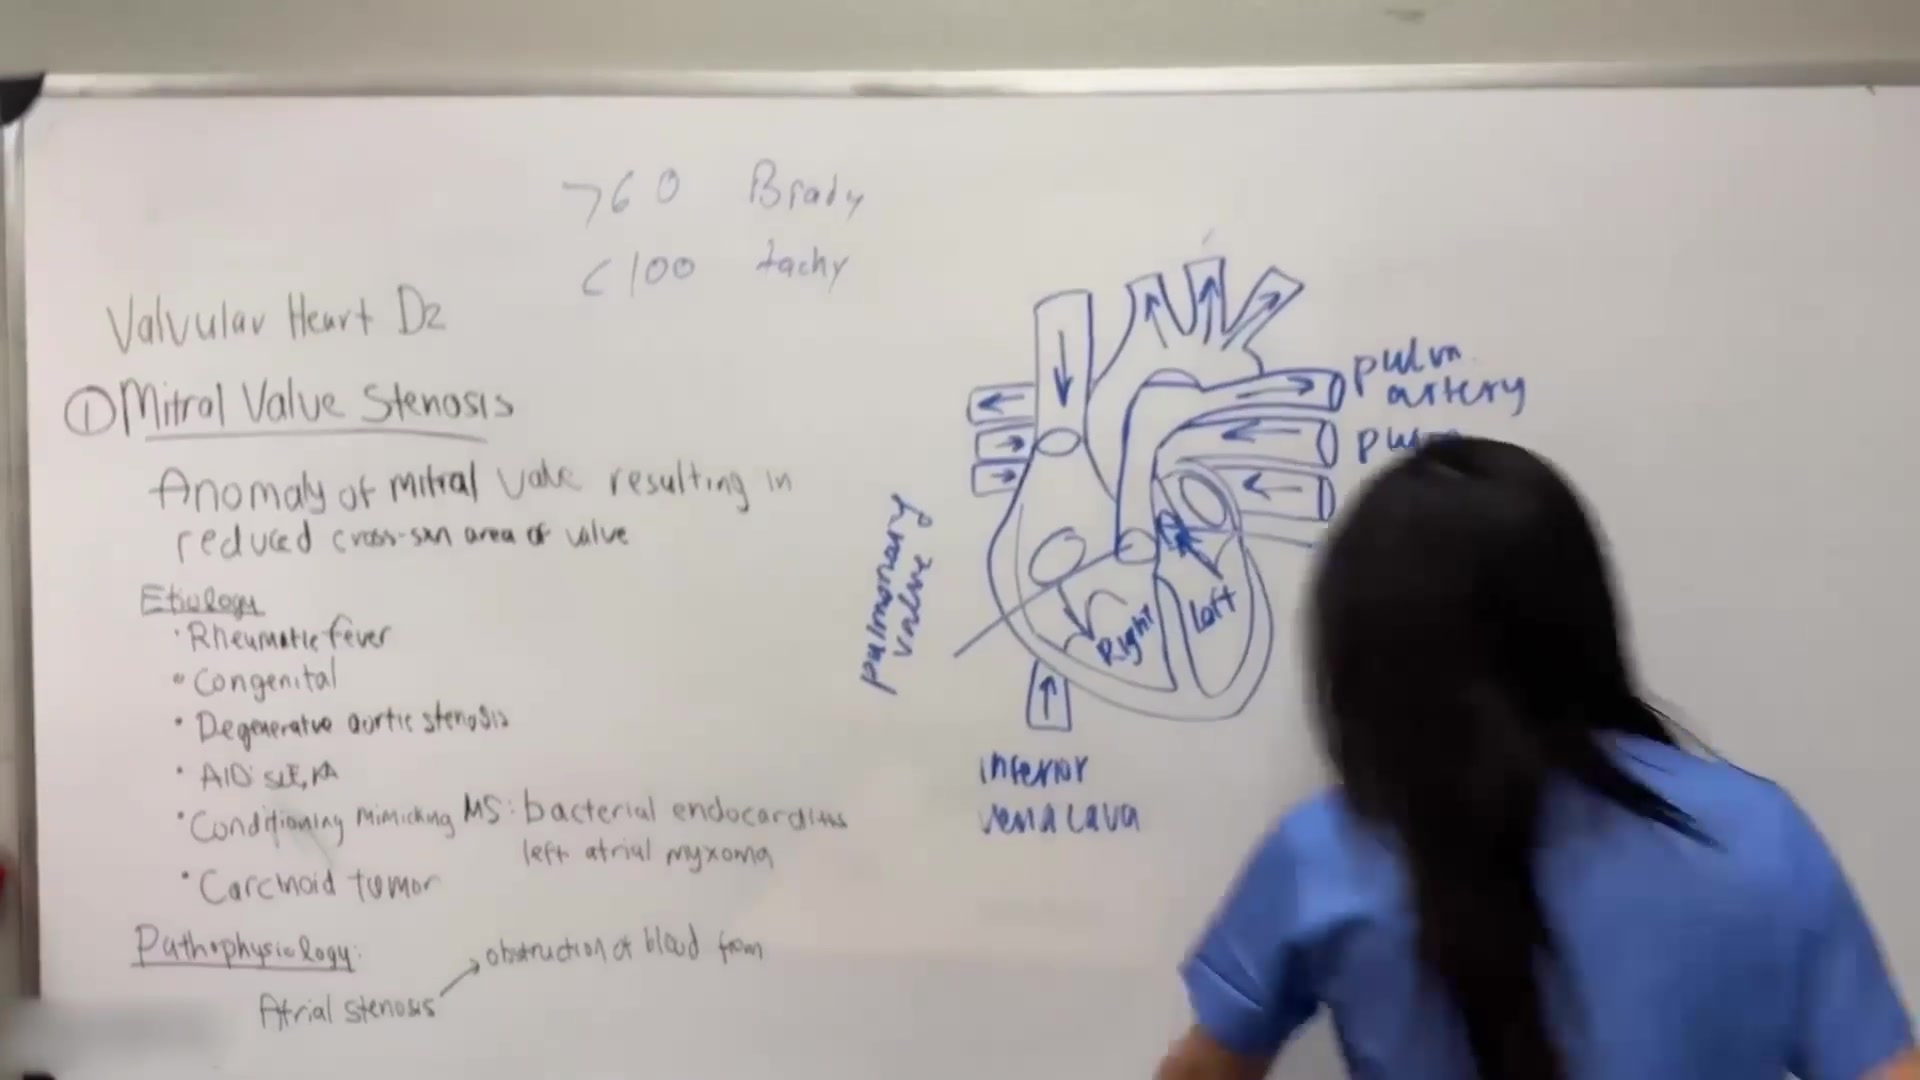 >60 Brady
<100 tachy
Valvular Heart Dz
① Mitral Valve Stenosis
Anomaly of mitral valve resulting in
reduced cross-sxn area of valve
Etiology
• Rheumatic fever
• Congenital
• Degenerative aortic stenosis
• AID: SLE, RA
• Conditioning mimicking MS: bacterial endocarditis
left atrial myxoma
• Carcinoid tumor
Pathophysiology:
Atrial stenosis
obstruction of blood from
pulm.
artery
pulmonary
valve
Right
Left
inferior
vena cava